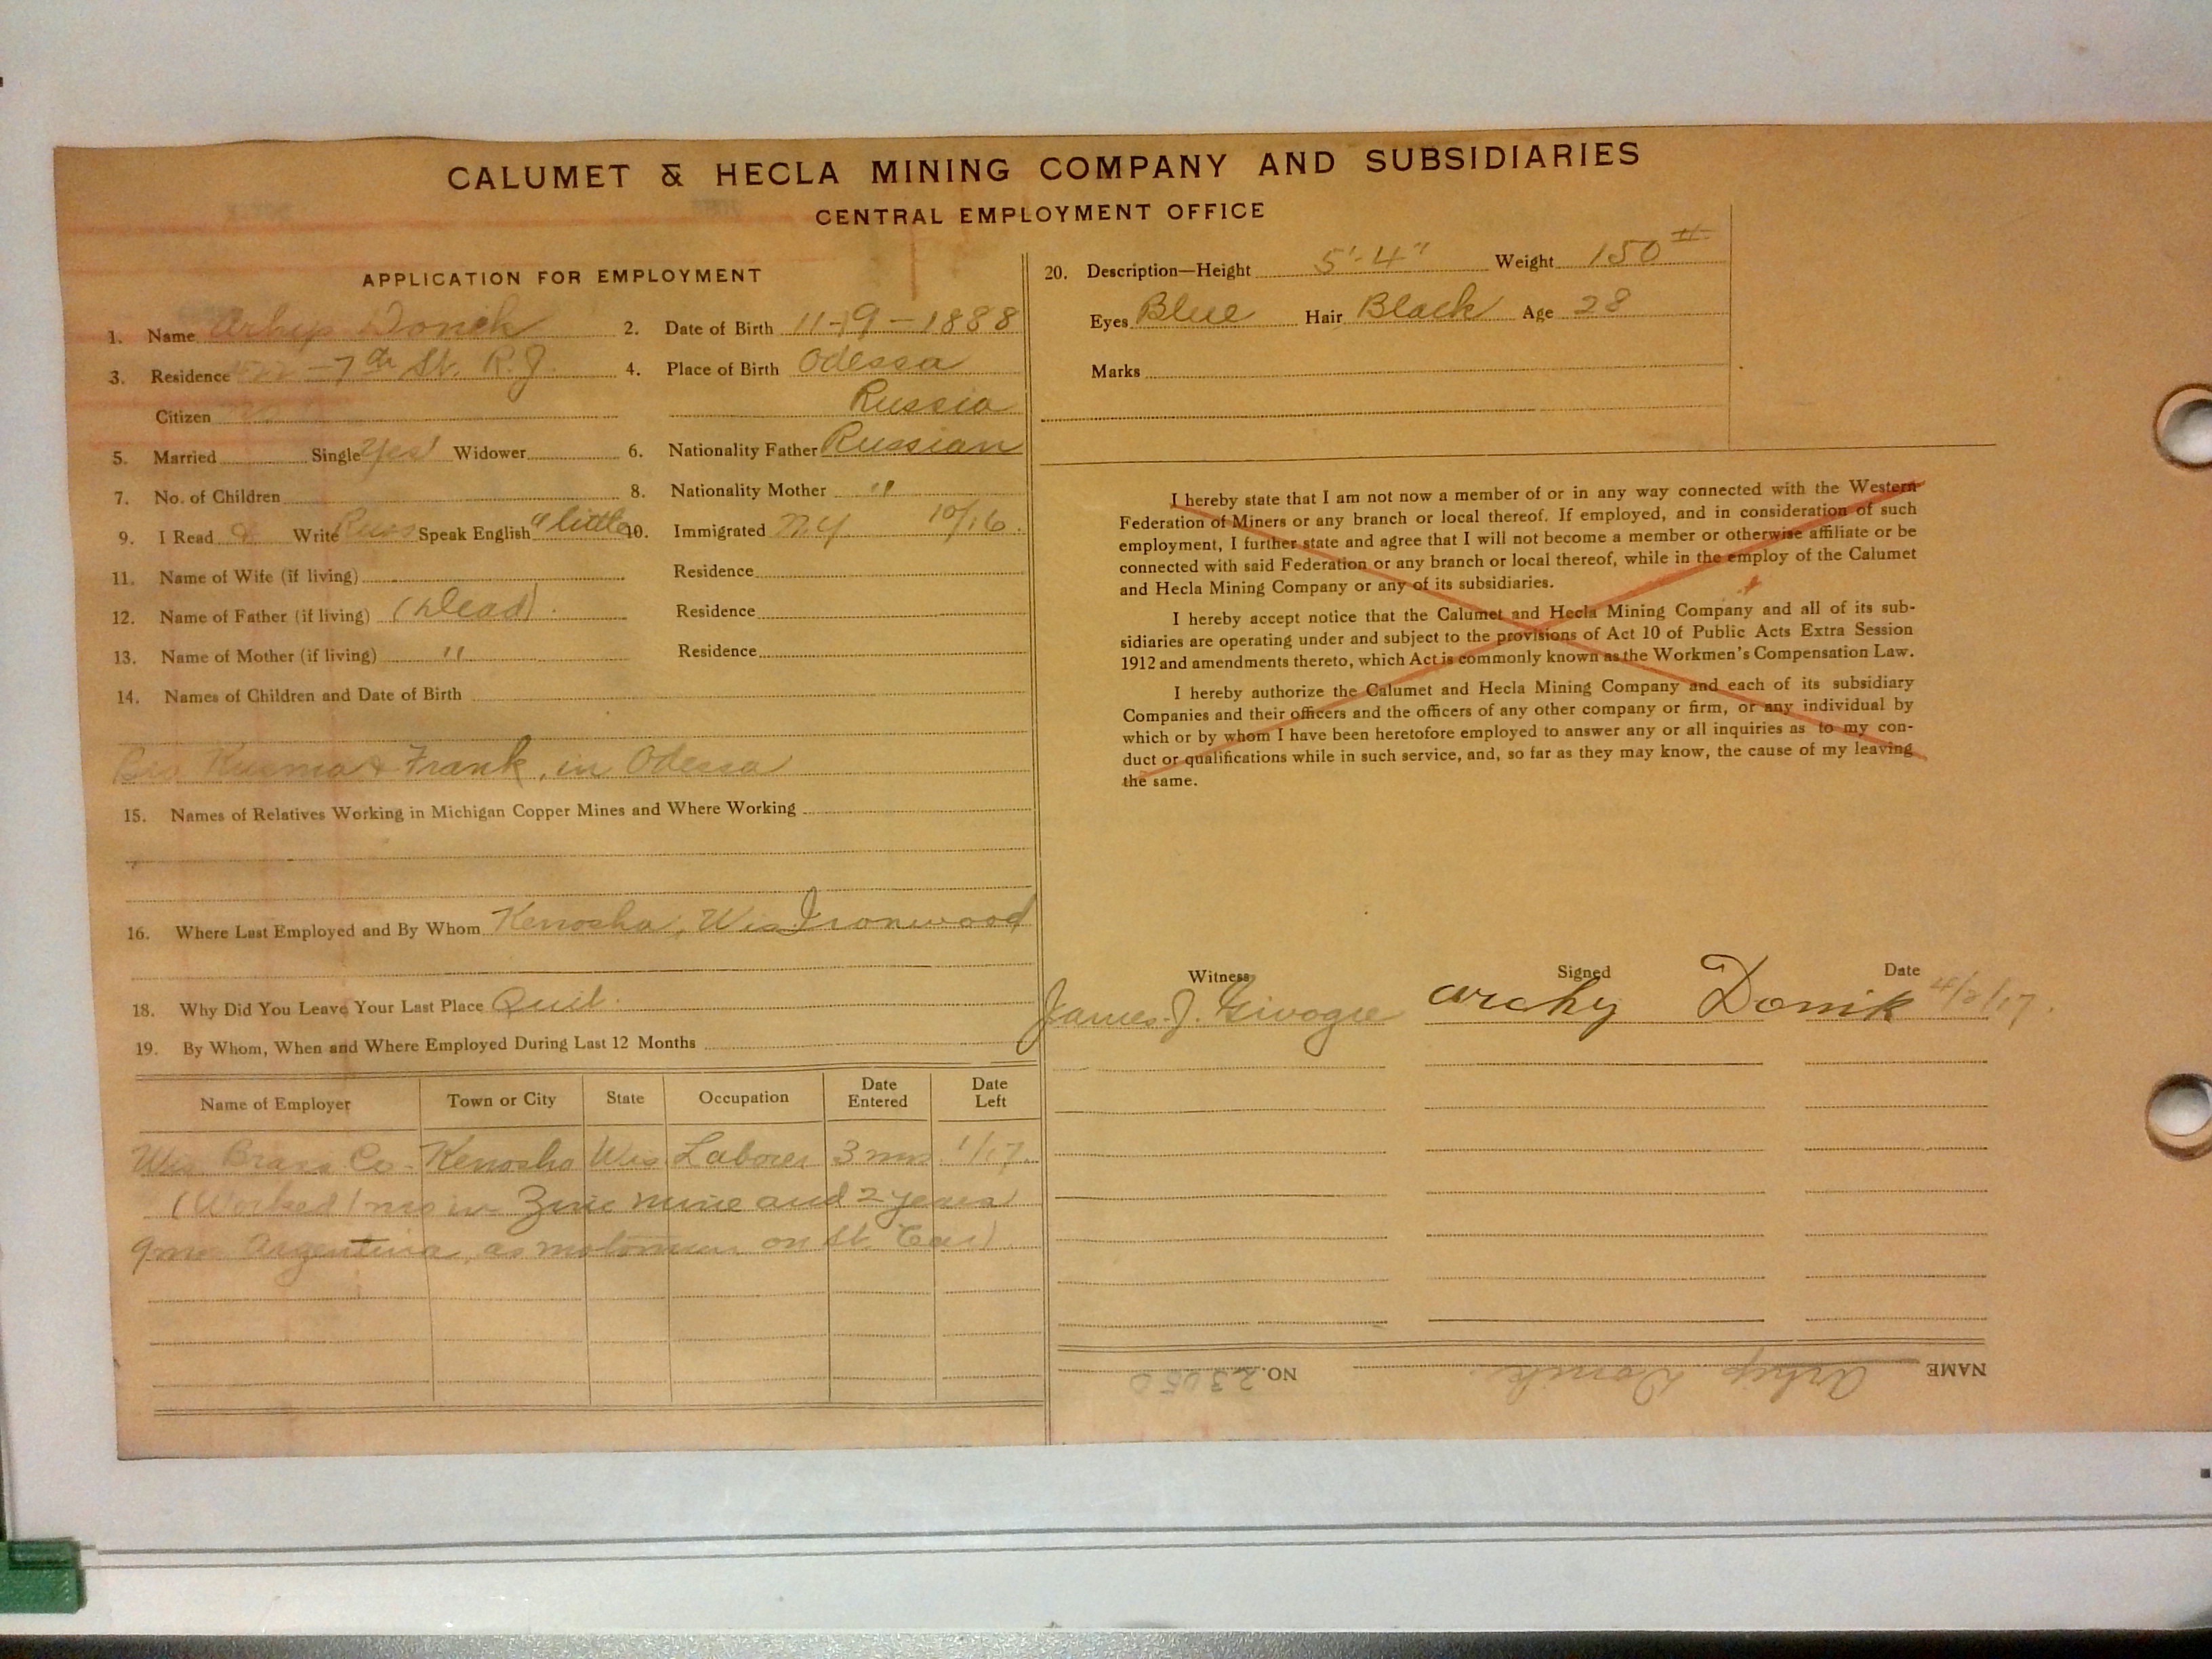 CALUMET & HECLA MINING COMPANY AND SUBSIDIARIES
CENTRAL EMPLOYMENT OFFICE
APPLICATION FOR EMPLOYMENT
1. Name Arhip Donick 2. Date of Birth 11-19-1888
3. Residence -7th St. R.J. 4. Place of Birth Odessa
Citizen Russia
5. Married Single Yes Widower 6. Nationality Father Russian
7. No. of Children 8. Nationality Mother "
9. I Read & Write Russ Speak English a little 10. Immigrated N.Y. 10/16.
11. Name of Wife (if living) Residence
12. Name of Father (if living) (Dead). Residence
13. Name of Mother (if living) " Residence
14. Names of Children and Date of Birth
Bro Kusma & Frank, in Odessa
15. Names of Relatives Working in Michigan Copper Mines and Where Working
16. Where Last Employed and By Whom Kenosha, Wis Ironwood
18. Why Did You Leave Your Last Place Quit.
19. By Whom, When and Where Employed During Last 12 Months
Name of Employer Town or City State Occupation Date Entered Date Left
Wis Brass Co. Kenosha Wis Laborer 3 mos 1/17
(Worked 1 mo in Zinc mine and 2 years
9 mos Argentina, as motorman on St. Car)
20. Description—Height 5'-4" Weight 150#
Eyes Blue Hair Black Age 28
Marks
I hereby state that I am not now a member of or in any way connected with the Western
Federation of Miners or any branch or local thereof. If employed, and in consideration of such
employment, I further state and agree that I will not become a member or otherwise affiliate or be
connected with said Federation or any branch or local thereof, while in the employ of the Calumet
and Hecla Mining Company or any of its subsidiaries.
I hereby accept notice that the Calumet and Hecla Mining Company and all of its sub-
sidiaries are operating under and subject to the provisions of Act 10 of Public Acts Extra Session
1912 and amendments thereto, which Act is commonly known as the Workmen's Compensation Law.
I hereby authorize the Calumet and Hecla Mining Company and each of its subsidiary
Companies and their officers and the officers of any other company or firm, or any individual by
which or by whom I have been heretofore employed to answer any or all inquiries as to my con-
duct or qualifications while in such service, and, so far as they may know, the cause of my leaving
the same.
Witness Signed Date
James J. archy Donik 4/2/17.
NAME Arhip Donick NO. 23050